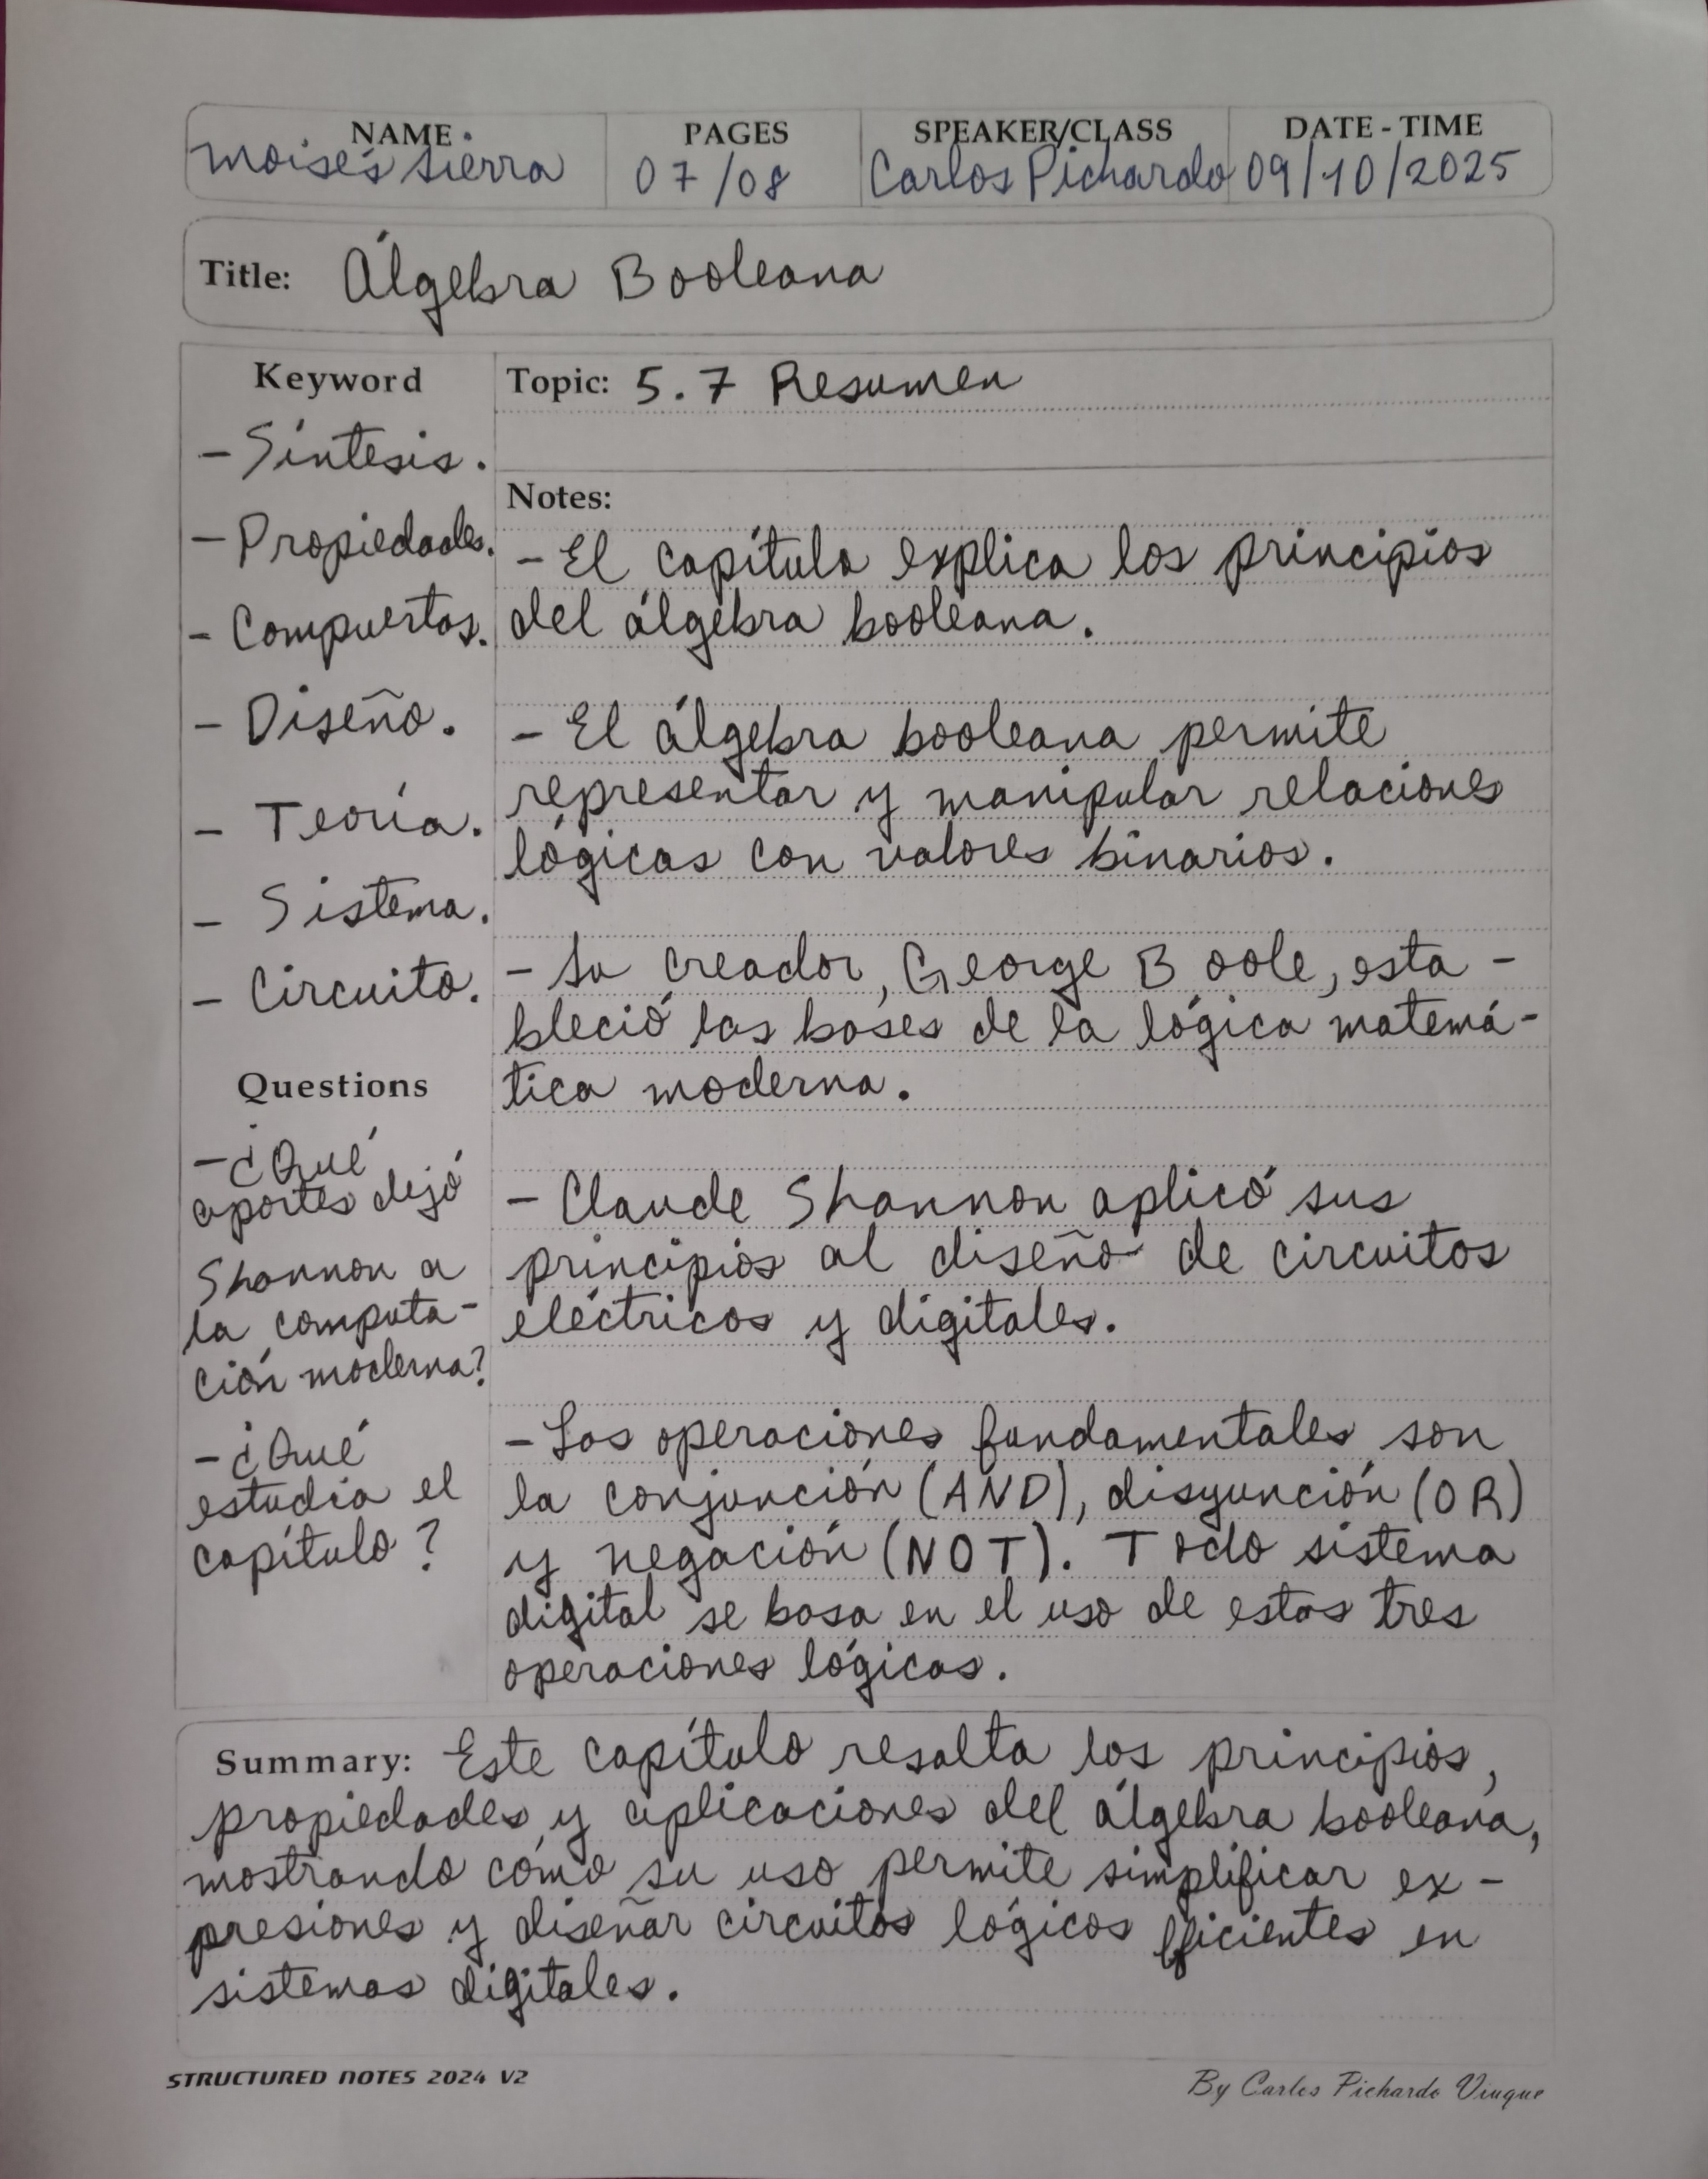 NAME PAGES SPEAKER/CLASS DATE - TIME
Moisés Sierra 07/08 Carlos Pichardo 09/10/2025
Title: Álgebra Booleana
Keyword
- Síntesis.
- Propiedades.
- Compuertas.
- Diseño.
- Teoría.
- Sistema.
- Circuito.
Questions
- ¿Qué
aportes dejó
Shannon a
la computa-
ción moderna?
- ¿Qué
estudia el
capítulo?
Topic: 5.7 Resumen
Notes:
- El capítulo explica los principios
del álgebra booleana.
- El álgebra booleana permite
representar y manipular relaciones
lógicas con valores binarios.
- Su creador, George Boole, esta-
bleció las bases de la lógica matemá-
tica moderna.
- Claude Shannon aplicó sus
principios al diseño de circuitos
eléctricos y digitales.
- Las operaciones fundamentales son
la conjunción (AND), disyunción (OR)
y negación (NOT). Todo sistema
digital se basa en el uso de estas tres
operaciones lógicas.
Summary: Este capítulo resalta los principios,
propiedades y aplicaciones del álgebra booleana,
mostrando cómo su uso permite simplificar ex-
presiones y diseñar circuitos lógicos eficientes en
sistemas digitales.
STRUCTURED NOTES 2024 V2
By Carlos Pichardo Viuque